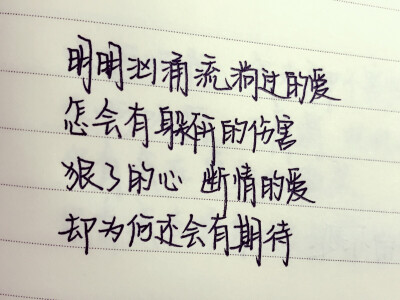 明明汹涌流淌过的爱
怎会有躲所的伤害
狠了的心 断情的爱
却为何还会有期待